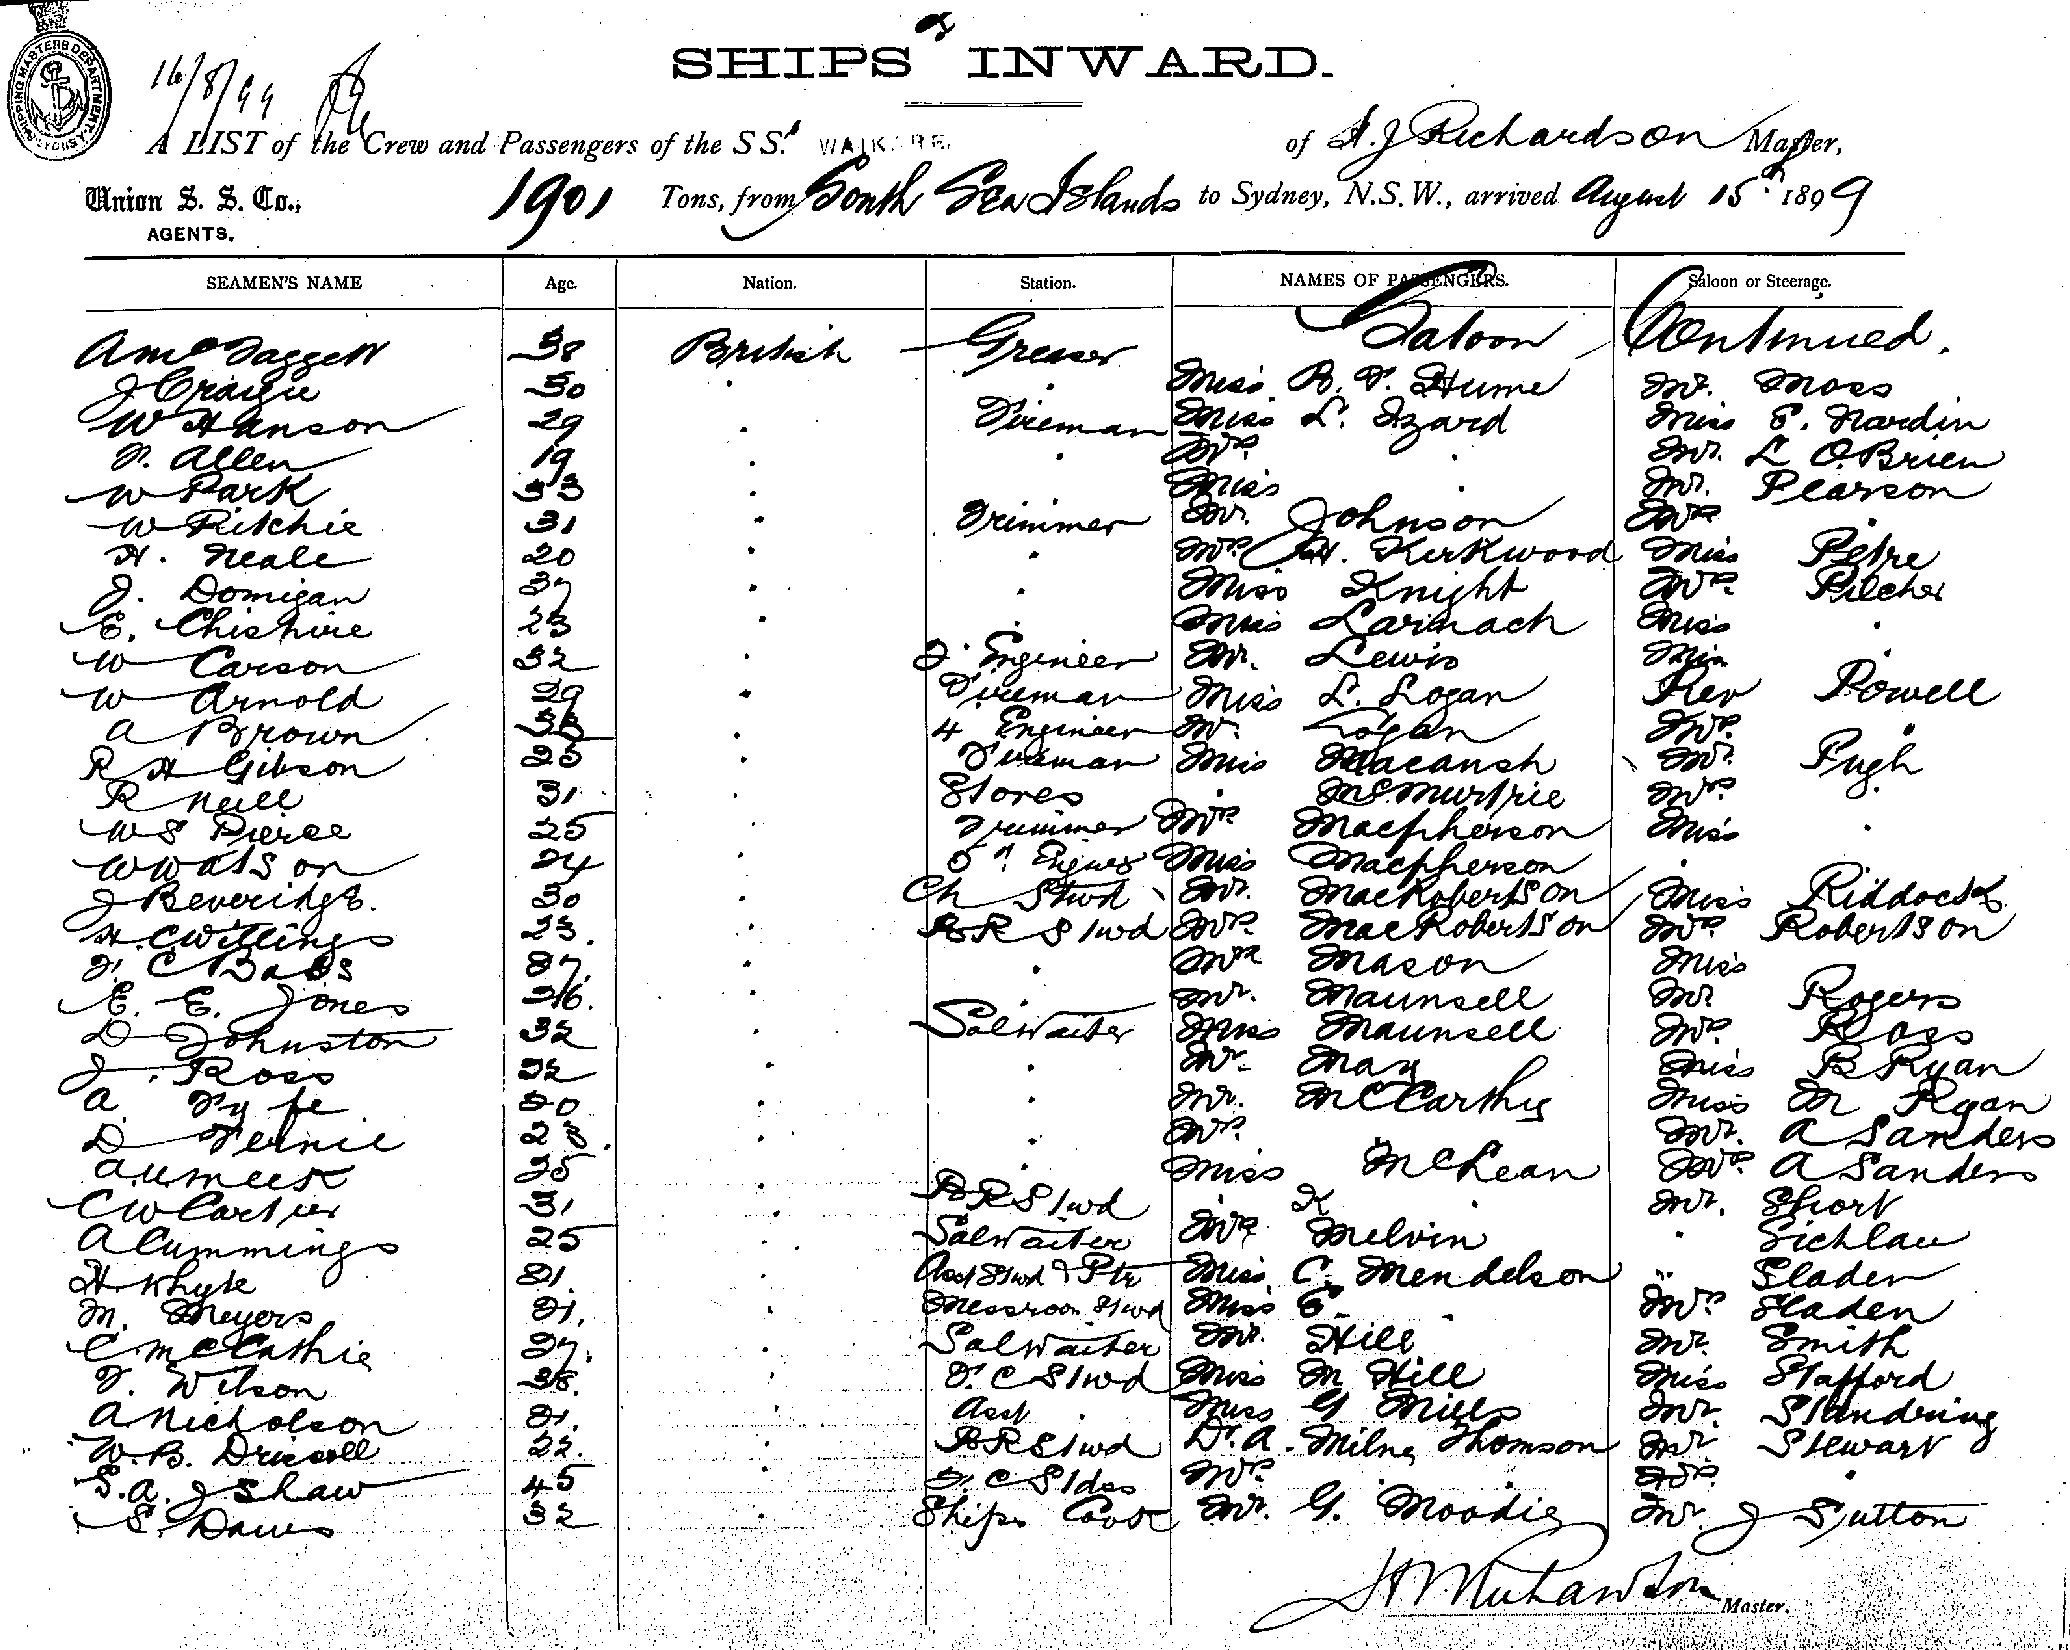 SHIPS INWARD.
16/8/99
A LIST of the Crew and Passengers of the SS. WAIKARE of Richardson Master,
Union S. S. Co., 1901 Tons, from South Sea Islands to Sydney, N.S.W., arrived August 15th 1899
AGENTS.
SEAMEN'S NAME Age. Nation. Station. NAMES OF PASSENGERS. Saloon or Steerage.
Saloon Continued.
A Mc Taggett 38 British Greaser
J Craigie 30 Miss B. V. Hume Mr. Moss
W Hanson 29 Fireman Miss L. Izard Miss E. Nardin
F. Allen 19 Mrs Mr. L O'Brien
W Park 33 Miss Mr. Pearson
W Ritchie 31 Trimmer Mr. Johnson Mrs
H. Neale 20 Mrs H. Kirkwood Miss Petre
J. Domigan 37 Miss Knight Mrs Pilcher
E. Chishire 23 Miss Larnach Miss
W Carson 32 Engineer Mr. Lewis Miss
W Arnold 29 Fireman Miss L. Logan Rev Powell
A Brown 4 Engineer Mr. Logan Mrs.
R H Gibson 25 Fireman Miss Macansh Mr. Pugh
R Neill 31 Stores McMurtrie Mrs
W S Pierce 25 Trimmer Mrs Macpherson Miss
W Watson 24 Miss Macpherson
J Beveridge. 30 Ch Stwd Mr. MacRobertson Miss Riddoch
H. C Witlings 33. BR Stwd Mrs MacRobertson Mrs Robertson
F. C Babs 27. Mrs Mason Miss
E. E. Jones 26. Mr. Maunsell Mr Rogers
D Johnston 32 Sal Waiter Miss Maunsell Mrs Ross
J. Ross 22 Mr. May Miss B Ryan
A Fyfe 20 Mr. McCarthy Miss M Ryan
D Fernie 23. Mrs. Mr. A Sanders
A. U Meek 25 Miss McLean Mrs A Sanders
C W Cartier 31 BR Stwd K Mr. Short
A Cummings 25 Sal Waiter Mrs Melvin Sichlau
H Whyte 21. Asst Stwd & Ptr Miss. C. Mendelson " Sladen
M. Meyers 21. Messroom Stwd Miss E. Mrs Sladen
C McCathie 27. Sal Waiter Mr. Hill Mr. Smith
F. Wilson 38. F. C Stwd Miss M Hill Miss Stafford
A Nicholson 21. Asst Miss G Mills Mr. Standring
W. B. Driscoll 22. BR Stwd Dr. A. Milne Thomson Mr Stewart
S. A. J Shaw 45 F. C Stdss Mrs. Mrs.
S. Daws 32 Ships Cook Mr. G. Moodie Mr. J Sutton
Master.